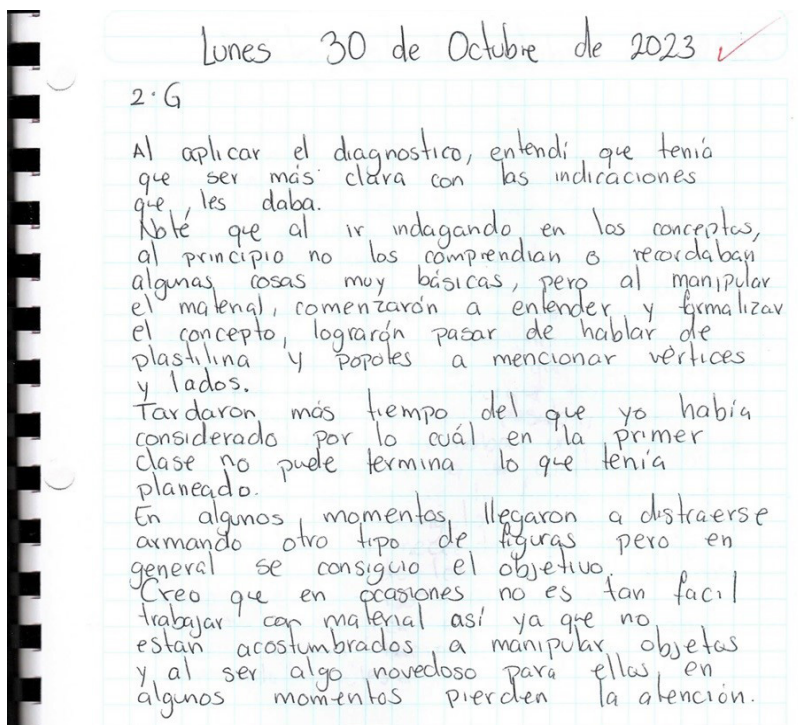 Lunes 30 de Octubre de 2023
2·G
Al aplicar el diagnostico, entendí que tenía
que ser más clara con las indicaciones
que les daba.
Noté que al ir indagando en los conceptos,
al principio no los comprendian o recordaban
algunas cosas muy básicas, pero al manipular
el material, comenzarón a entender y formalizar
el concepto, lograrón pasar de hablar de
plastilina y popotes a mencionar vértices
y lados.
Tardaron más tiempo del que yo había
considerado por lo cuál en la primer
clase no puede termina lo que tenía
planeado.
En algunos momentos llegaron a distraerse
armando otro tipo de figuras pero en
general se consiguio el objetivo.
Creo que en ocasiones no es tan facil
trabajar con material así ya que no
estan acostumbrados a manipular objetos
y al ser algo novedoso para ellos en
algunos momentos pierden la atención.